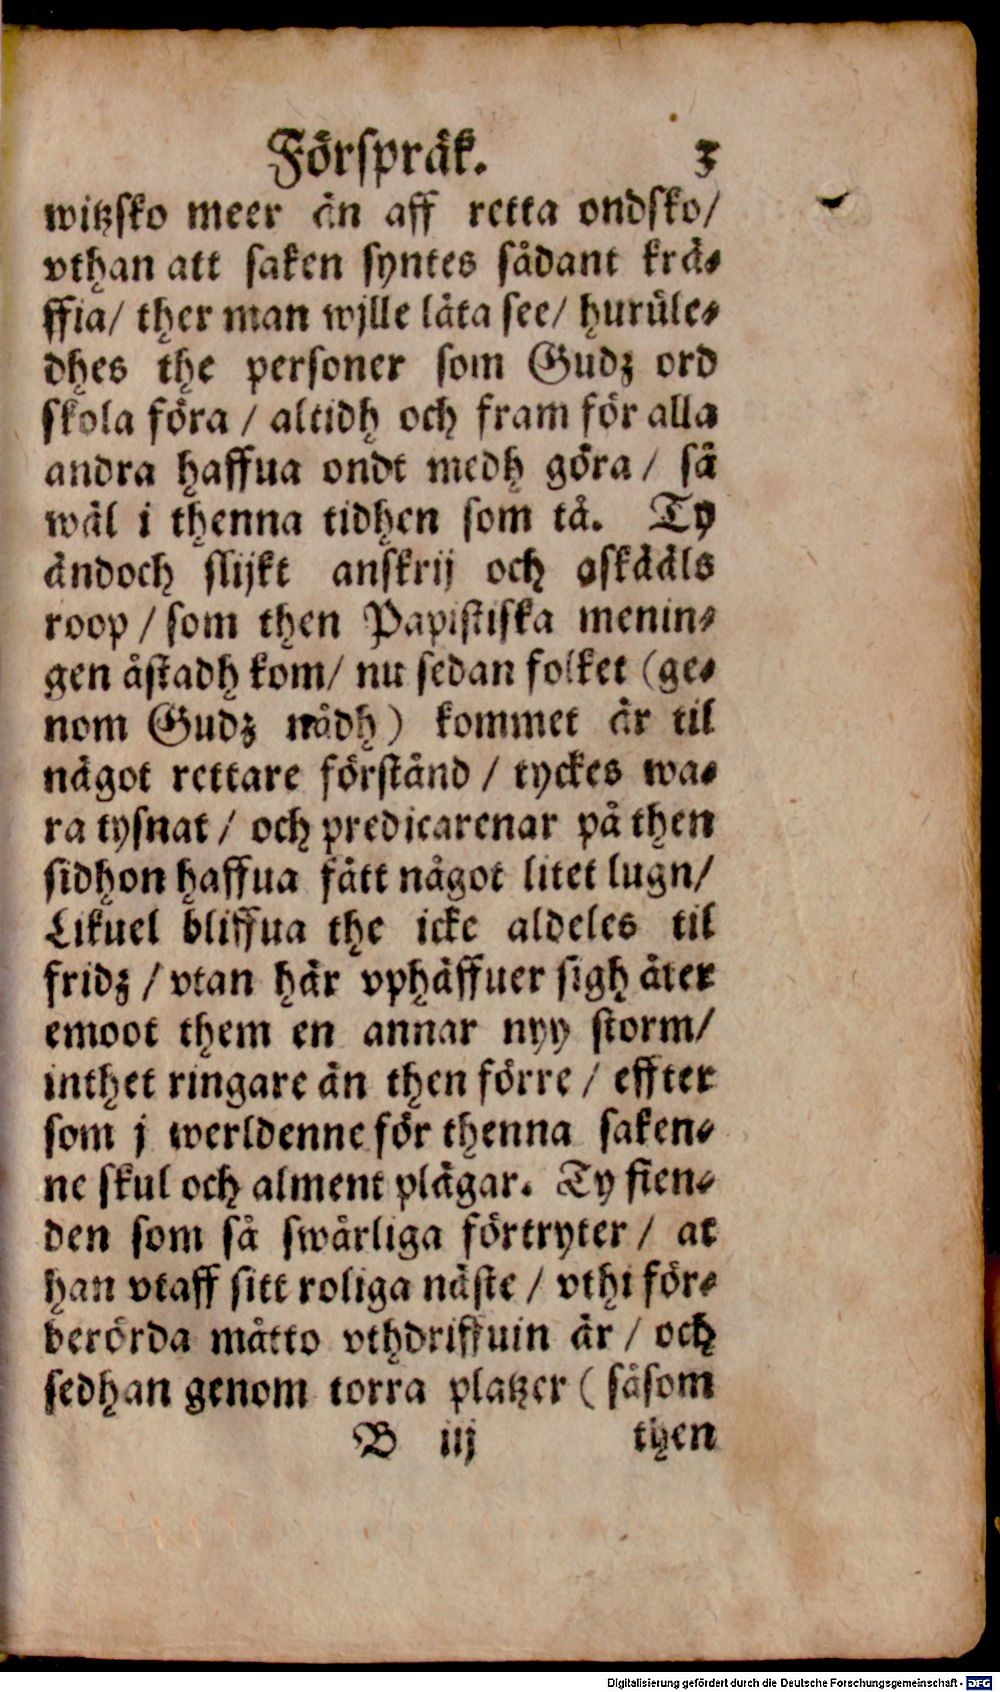 Förspråk. 3
witzsko meer än aff retta ondsko/
vthan att saken syntes sådant krä-
ffia/ ther man wjlle låta see/ hurule-
dhes the personer som Gudz ord
skola föra / altidh och fram för alla
andra haffua ondt medh göra/ så
wäl i thenna tidhen som tå. Ty
ändoch slijkt anskrij och oskääls
roop / som then Papistiska menin-
gen åstadh kom/ nu sedan folket (ge-
nom Gudz nådh) kommet är til
något rettare förstånd / tyckes wa-
ra tysnat / och predicarenar på then
sidhon haffua fått något litet lugn/
Likuel bliffua the icke aldeles til
fridz / vtan här vphäffuer sigh åter
emoot them en annar nyy storm/
inthet ringare än then förre / effter
som j werldenne för thenna saken-
ne skul och alment plägar. Ty fien-
den som så swårliga förtryter / at
han vtaff sitt roliga näste / vthi för-
berörda måtto vthdriffuin är / och
sedhan genom torra platzer ( såsom
B iij then
Digitalisierung gefördert durch die Deutsche Forschungsgemeinschaft - DFG